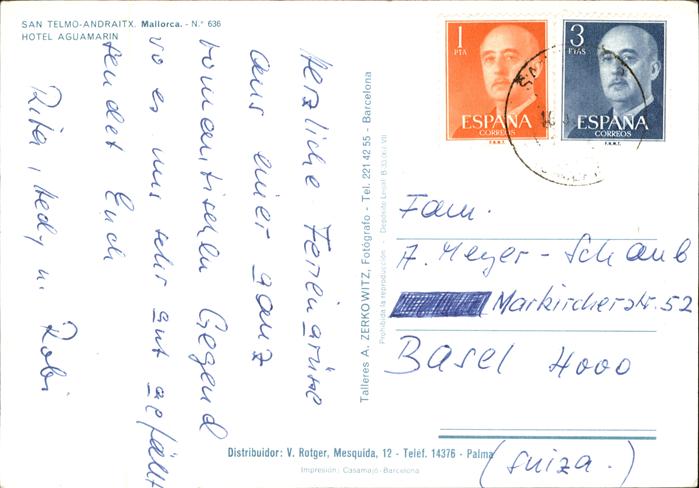 SAN TELMO-ANDRAITX. Mallorca. - N.° 636
HOTEL AGUAMARIN
Herzliche Feriengrüsse
aus einer ganz
romantischen Gegend
wo es uns sehr gut gefällt
sendet Euch
Rita, Hedy u. Robi
Talleres A. ZERKOWITZ, Fotógrafo - Tel. 221 42 55 - Barcelona
Prohibida la reproducción - Depósito Legal B.
1
PTA
ESPAÑA
CORREOS
F.N.M.T.
3
PTAS
ESPAÑA
CORREOS
F.N.M.T.
Fam.
A. Meyer - Schaub
Markircherstr. 52
Basel 4000
(Suiza.)
Distribuidor: V. Rotger, Mesquida, 12 - Teléf. 14376 - Palma
Impresión: Casamajó-Barcelona